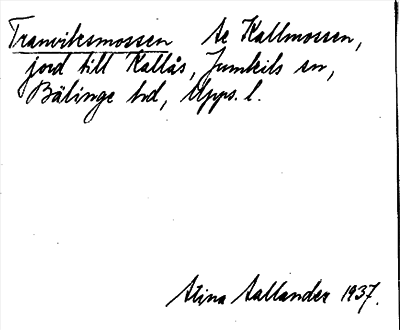 Tranviksmossen se Kallmossen,
jord till Kallås, Jumkils sn,
Bälinge hd, Upps. l.
Stina Sallander 1937.